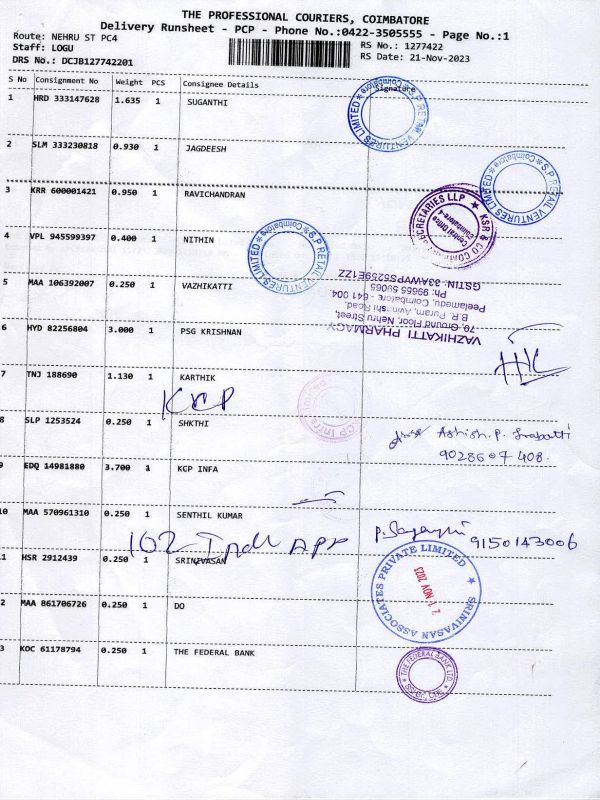 THE PROFESSIONAL COURIERS, COIMBATORE
Delivery Runsheet - PCP - Phone No.:0422-3505555 - Page No.:1
Route: NEHRU ST PC4
RS No.: 1277422
Staff: LOGU
RS Date: 21-Nov-2023
DRS No.: DCJB127742201
S No Consignment No Weight PCS Consignee Details Signature
1 HRD 333147628 1.635 1 SUGANTHI
S.P RETAIL VENTURES LIMITED
2 SLM 333230818 0.930 1 JAGDEESH
S.P RETAIL VENTURES LIMITED * Coimbatore *
3 KRR 600001421 0.950 1 RAVICHANDRAN
KSR & CO COMPANY SECRETARIES LLP
Central Office
Coimbatore
4 VPL 945599397 0.400 1 NITHIN
S.P RETAIL VENTURES LIMITED * Coimbatore *
5 MAA 106392007 0.250 1 VAZHIKATTI
VAZHIKATTI PHARMACY
79, Ground Floor, Nehru Street,
B.R. Puram, Avinashi Road,
Peelamedu, Coimbatore - 641 004
Ph: 99655 59065
GSTIN: 33AWVPS5259E1ZZ
6 HYD 82256804 3.000 1 PSG KRISHNAN
7 TNJ 188690 1.130 1 KARTHIK
KCP
8 SLP 1253524 0.250 1 SHKTHI
Ashish. P.
9028607408.
9 EDQ 14981880 3.700 1 KCP INFA
10 MAA 570961310 0.250 1 SENTHIL KUMAR
102 Indl APP
9150143006
11 HSR 2912439 0.250 1 SRINIVASAN
SRINIVASAN ASSOCIATES PRIVATE LIMITED
2 1 NOV 2023
2 MAA 861706726 0.250 1 DO
3 KOC 61178794 0.250 1 THE FEDERAL BANK
THE FEDERAL BANK LTD.